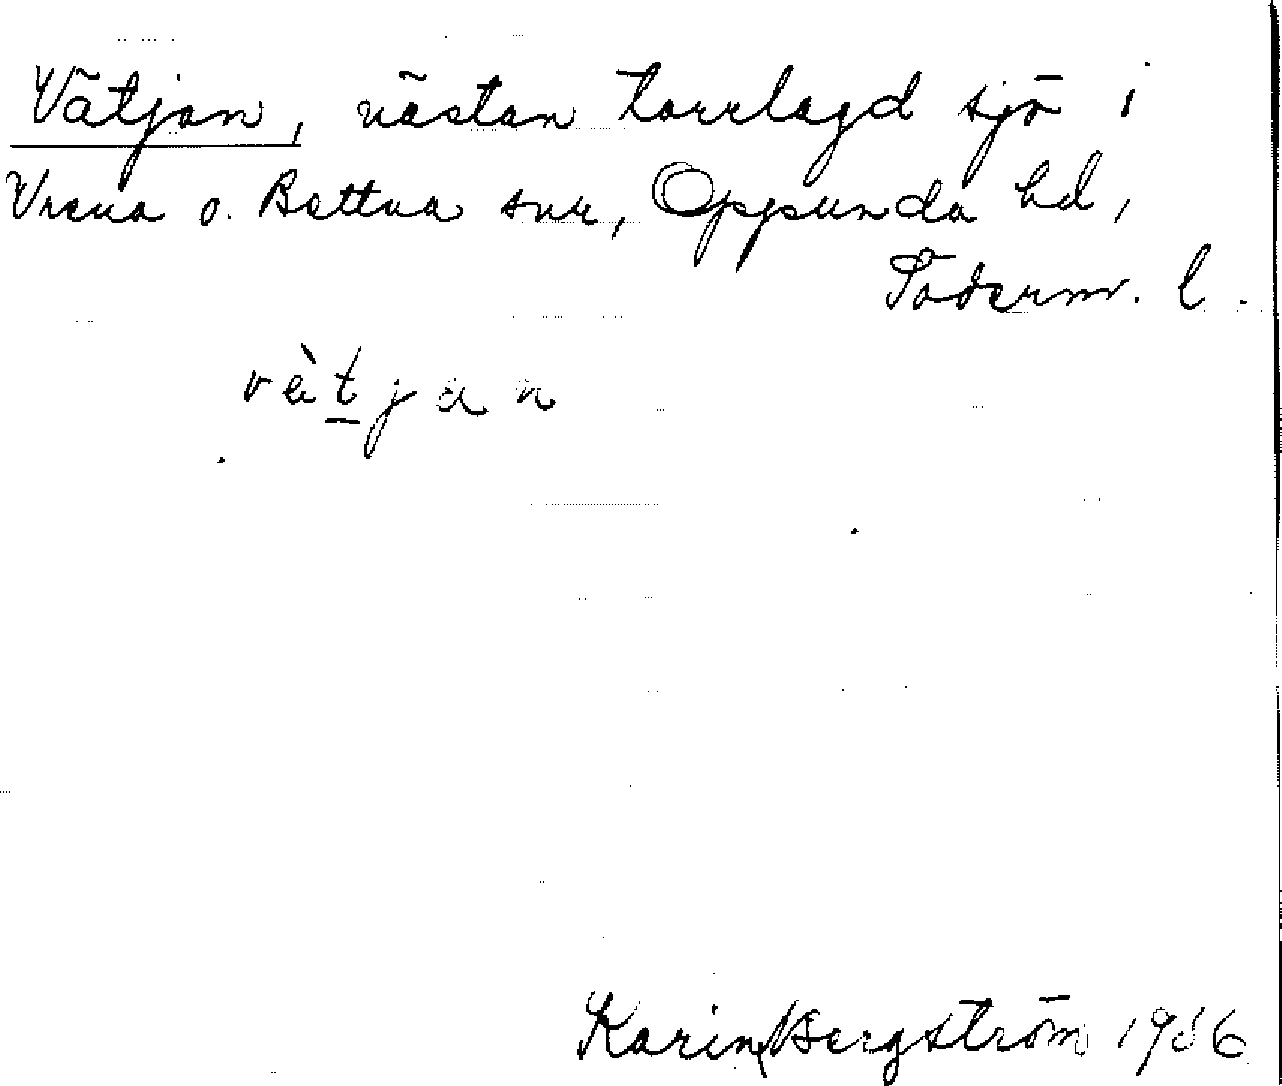 Vätjan, nästan torrlagd sjö i
Vrena o. Bettna snr, Oppunda hd,
Söderm. l.
vètjan
Karin Bergström 1936